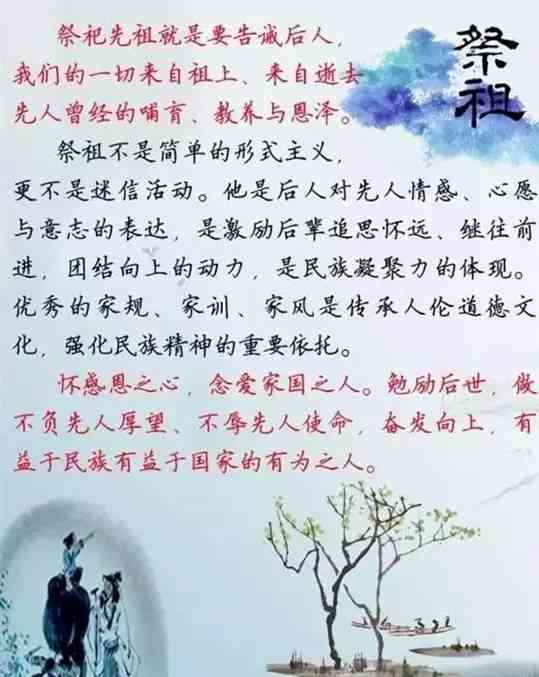 祭祖
祭祀先祖就是要告诫后人，
我们的一切来自祖上、来自逝去
先人曾经的哺育、教养与恩泽。
祭祖不是简单的形式主义，
更不是迷信活动。他是后人对先人情感、心愿
与意志的表达，是激励后辈追思怀远、继往前
进，团结向上的动力，是民族凝聚力的体现。
优秀的家规、家训、家风是传承人伦道德文
化，强化民族精神的重要依托。
怀感恩之心，念爱家国之人。勉励后世，做
不负先人厚望、不辱先人使命，奋发向上，有
益于民族有益于国家的有为之人。